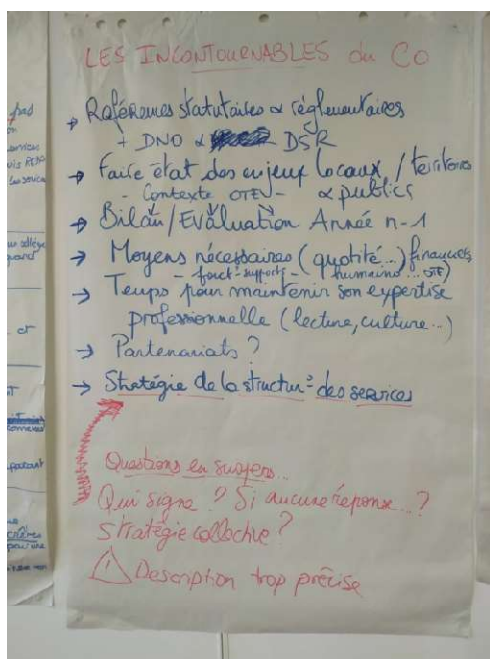 LES INCONTOURNABLES du CO
→ Références statutaires & réglementaires
+ DNO & DSR
→ Faire état des enjeux locaux / territoires
- Contexte - & publics
→ Bilan / Evaluation Année n-1
→ Moyens nécessaires (quotité...) financiers
- fonct-supports - humains...
→ Temps pour maintenir son expertise
professionnelle (lecture, culture...)
→ Partenariats ?
→ Stratégie de la structure des services
Questions en suspens...
Qui signe ? Si aucune réponse...?
Stratégie collective ?
! Description trop précise
pas
services
collège
quand
et
connexes
partant
pour une